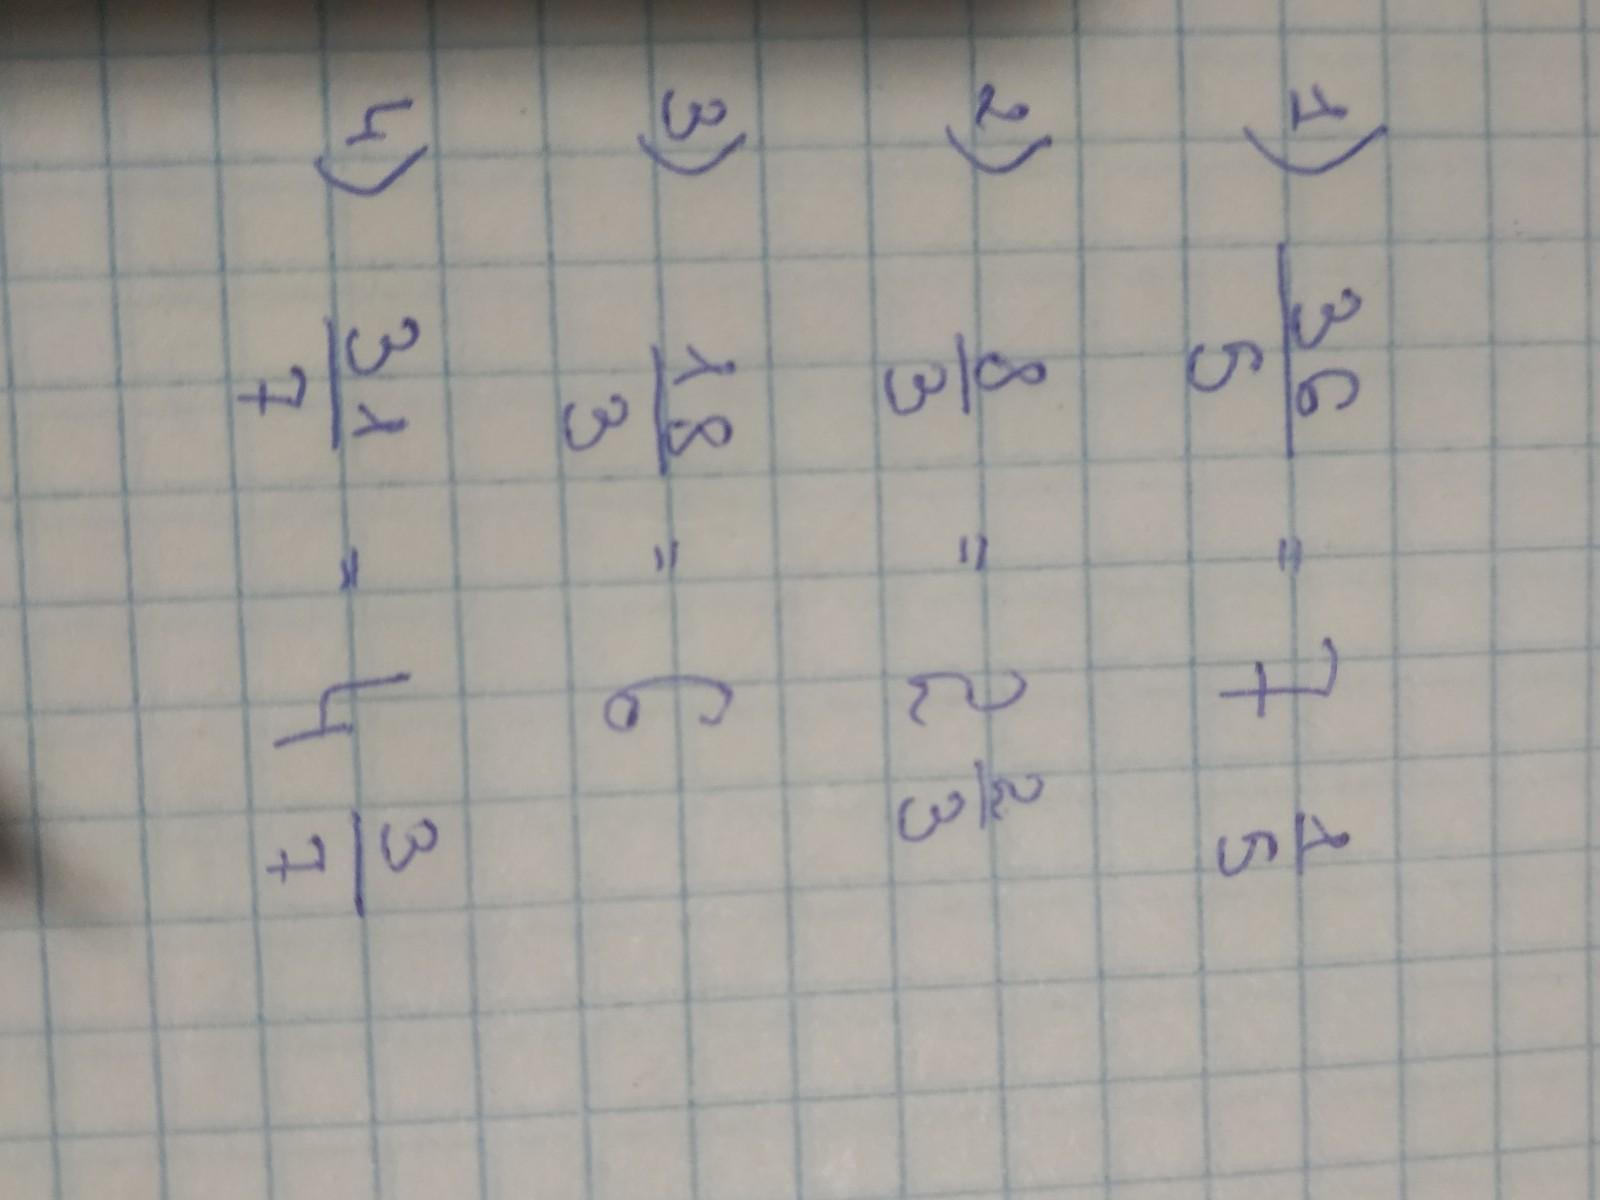 1) 36/5 = 7 1/5
2) 8/3 = 2 2/3
3) 18/3 = 6
4) 31/7 = 4 3/7